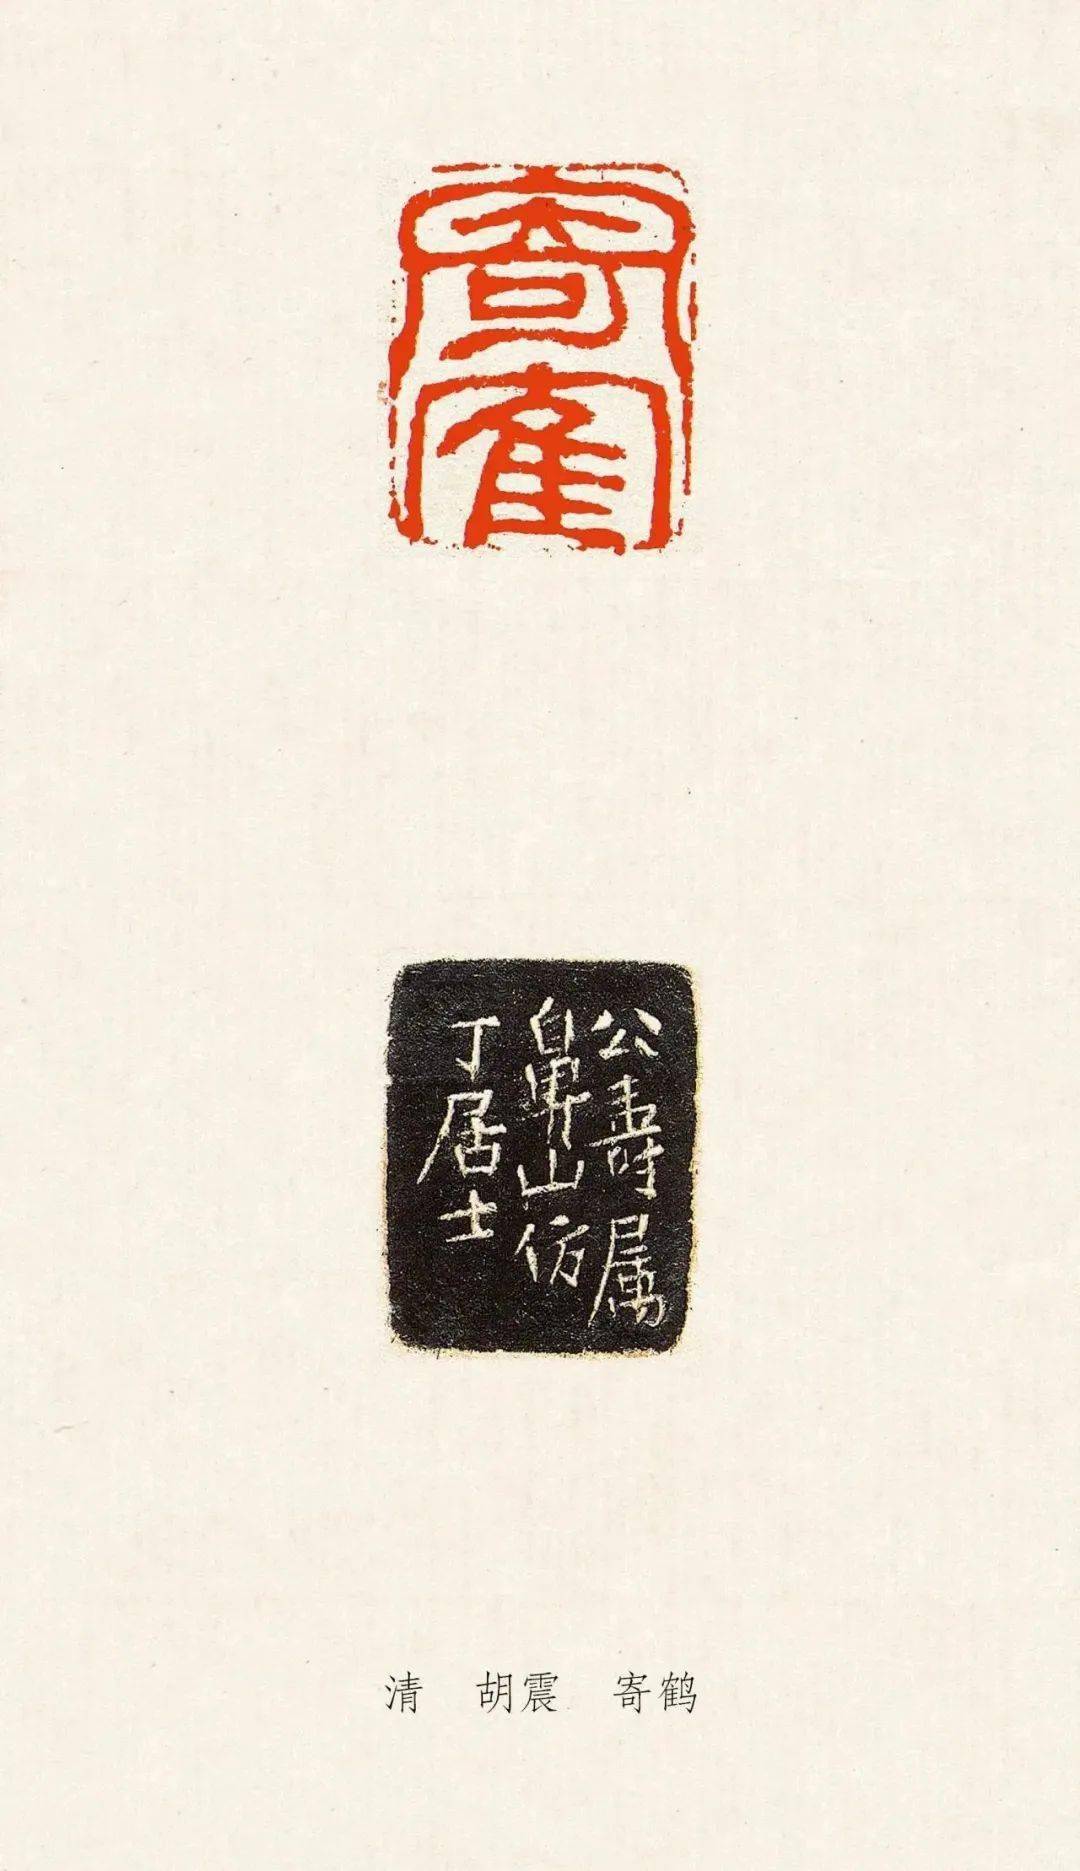 寄隺
公壽属
鼻山仿
丁居士
清　胡震　寄鹤